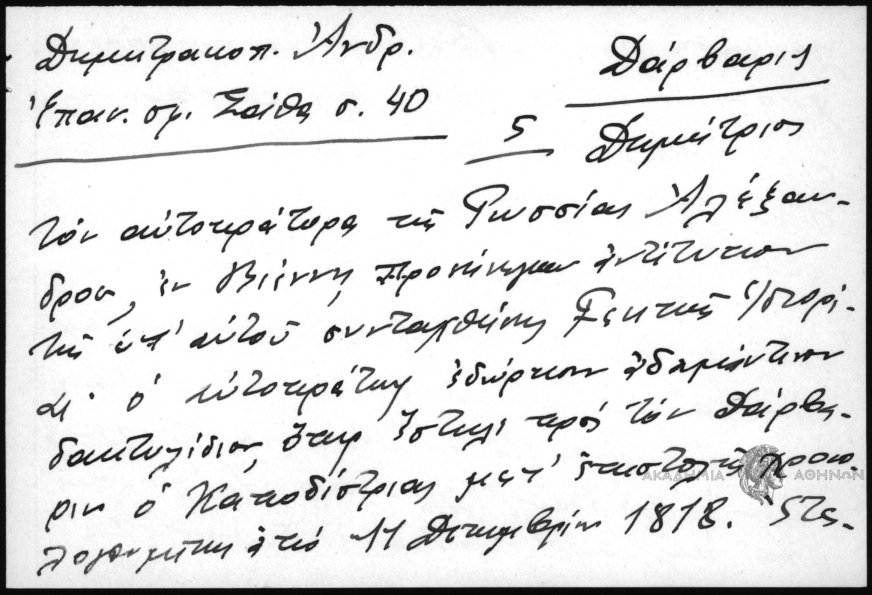 Δημητρακοπ. Ἀνδρ.
Ἐπαν. σφ. Σάθα σ. 40
Δάρβαρις
5 Δημήτριος
τὸν αὐτοκράτορα τῆς Ρωσσίας Ἀλέξαν-
δρον, ἐν Βιέννῃ, ἀντίτυπον
τῆς ὑπ' αὐτοῦ συνταχθείσης Ἱστορί-
ὁ αὐτοκράτωρ ἐδώρησεν ἀδαμάντινον
δακτυλίδιον, ὅπερ ἔστειλε πρὸς τὸν Δάρβα-
ριν ὁ Καποδίστριας μετ' ἐπιστολῆς
ἀπὸ 11 Δεκεμβρίου 1818.
ΑΚΑΔΗΜΙΑ ΑΘΗΝΩΝ